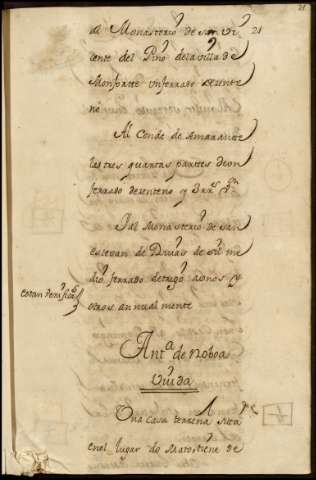 21
al Monasterio de san Vi
cente del Pino de la villa de
Monforte un ferrado de zente
no
Al Conde de Amarante
las tres quartas partes de un
ferrado de zenteno y
Y al Monasterio de san
estevan de de Sil me
dio ferrado de trigo a unos y
otros annualmente
Ant.ª de Noboa
Viuda
Una casa terrena sita
en el lugar do de